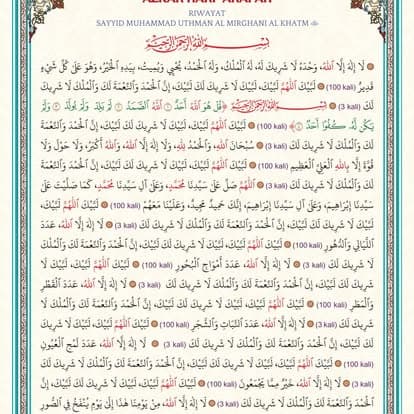 RIWAYAT
SAYYID MUHAMMAD UTHMAN AL MIRGHANI AL KHATM
بِسْمِ اللهِ الرَّحْمٰنِ الرَّحِيْمِ
لَا إِلٰهَ إِلَّا اللهُ، وَحْدَهُ لَا شَرِيكَ لَهُ، لَهُ الْمُلْكُ، وَلَهُ الْحَمْدُ، يُحْيِي وَيُمِيتُ، بِيَدِهِ الْخَيْرُ، وَهُوَ عَلَى كُلِّ شَيْءٍ
قَدِيرٌ (100 kali) لَبَّيْكَ اللّٰهُمَّ لَبَّيْكَ، لَبَّيْكَ لَا شَرِيكَ لَكَ لَبَّيْكَ، إِنَّ الْحَمْدَ وَالنِّعْمَةَ لَكَ وَالْمُلْكَ لَا شَرِيكَ
لَكَ (3 kali) بِسْمِ اللهِ الرَّحْمٰنِ الرَّحِيْمِ ﴿قُلْ هُوَ اللهُ أَحَدٌ ۝ اللهُ الصَّمَدُ ۝ لَمْ يَلِدْ وَلَمْ يُولَدْ ۝ وَلَمْ
يَكُنْ لَهُ كُفُوًا أَحَدٌ ۝﴾ (100 kali) لَبَّيْكَ اللّٰهُمَّ لَبَّيْكَ، لَبَّيْكَ لَا شَرِيكَ لَكَ لَبَّيْكَ، إِنَّ الْحَمْدَ وَالنِّعْمَةَ
لَكَ وَالْمُلْكَ لَا شَرِيكَ لَكَ (3 kali) سُبْحَانَ اللهِ، وَالْحَمْدُ لِلهِ، وَلَا إِلٰهَ إِلَّا اللهُ، وَاللهُ أَكْبَرُ، وَلَا حَوْلَ وَلَا
قُوَّةَ إِلَّا بِاللهِ الْعَلِيِّ الْعَظِيمِ (100 kali) لَبَّيْكَ اللّٰهُمَّ لَبَّيْكَ، لَبَّيْكَ لَا شَرِيكَ لَكَ لَبَّيْكَ، إِنَّ الْحَمْدَ وَالنِّعْمَةَ
لَكَ وَالْمُلْكَ لَا شَرِيكَ لَكَ (3 kali) اللّٰهُمَّ صَلِّ عَلَى سَيِّدِنَا مُحَمَّدٍ، وَعَلَى آلِ سَيِّدِنَا مُحَمَّدٍ، كَمَا صَلَّيْتَ عَلَى
سَيِّدِنَا إِبْرَاهِيمَ، وَعَلَى آلِ سَيِّدِنَا إِبْرَاهِيمَ، إِنَّكَ حَمِيدٌ مَجِيدٌ، وَعَلَيْنَا مَعَهُمْ (100 kali) لَبَّيْكَ اللّٰهُمَّ لَبَّيْكَ،
لَبَّيْكَ لَا شَرِيكَ لَكَ لَبَّيْكَ، إِنَّ الْحَمْدَ وَالنِّعْمَةَ لَكَ وَالْمُلْكَ لَا شَرِيكَ لَكَ (3 kali) لَا إِلٰهَ إِلَّا اللهُ، عَدَدَ
اللَّيَالِي وَالدُّهُورِ (100 kali) لَبَّيْكَ اللّٰهُمَّ لَبَّيْكَ، لَبَّيْكَ لَا شَرِيكَ لَكَ لَبَّيْكَ، إِنَّ الْحَمْدَ وَالنِّعْمَةَ لَكَ وَالْمُلْكَ
لَا شَرِيكَ لَكَ (3 kali) لَا إِلٰهَ إِلَّا اللهُ، عَدَدَ أَمْوَاجِ الْبُحُورِ (100 kali) لَبَّيْكَ اللّٰهُمَّ لَبَّيْكَ، لَبَّيْكَ لَا
شَرِيكَ لَكَ لَبَّيْكَ، إِنَّ الْحَمْدَ وَالنِّعْمَةَ لَكَ وَالْمُلْكَ لَا شَرِيكَ لَكَ (3 kali) لَا إِلٰهَ إِلَّا اللهُ، عَدَدَ الْقَطْرِ
وَالْمَطَرِ (100 kali) لَبَّيْكَ اللّٰهُمَّ لَبَّيْكَ، لَبَّيْكَ لَا شَرِيكَ لَكَ لَبَّيْكَ، إِنَّ الْحَمْدَ وَالنِّعْمَةَ لَكَ وَالْمُلْكَ لَا
شَرِيكَ لَكَ (3 kali) لَا إِلٰهَ إِلَّا اللهُ، عَدَدَ النَّبَاتِ وَالشَّجَرِ (100 kali) لَبَّيْكَ اللّٰهُمَّ لَبَّيْكَ، لَبَّيْكَ لَا شَرِيكَ
لَكَ لَبَّيْكَ، إِنَّ الْحَمْدَ وَالنِّعْمَةَ لَكَ وَالْمُلْكَ لَا شَرِيكَ لَكَ (3 kali) لَا إِلٰهَ إِلَّا اللهُ، عَدَدَ لَمْحِ الْعُيُونِ
(100 kali) لَبَّيْكَ اللّٰهُمَّ لَبَّيْكَ، لَبَّيْكَ لَا شَرِيكَ لَكَ لَبَّيْكَ، إِنَّ الْحَمْدَ وَالنِّعْمَةَ لَكَ وَالْمُلْكَ لَا شَرِيكَ لَكَ
(3 kali) لَا إِلٰهَ إِلَّا اللهُ، خَيْرٌ مِمَّا يَجْمَعُونَ (100 kali) لَبَّيْكَ اللّٰهُمَّ لَبَّيْكَ، لَبَّيْكَ لَا شَرِيكَ لَكَ لَبَّيْكَ، إِنَّ
الْحَمْدَ وَالنِّعْمَةَ لَكَ وَالْمُلْكَ لَا شَرِيكَ لَكَ (3 kali) لَا إِلٰهَ إِلَّا اللهُ، مِنْ يَوْمِنَا هٰذَا إِلَى يَوْمِ يُنْفَخُ فِي الصُّورِ